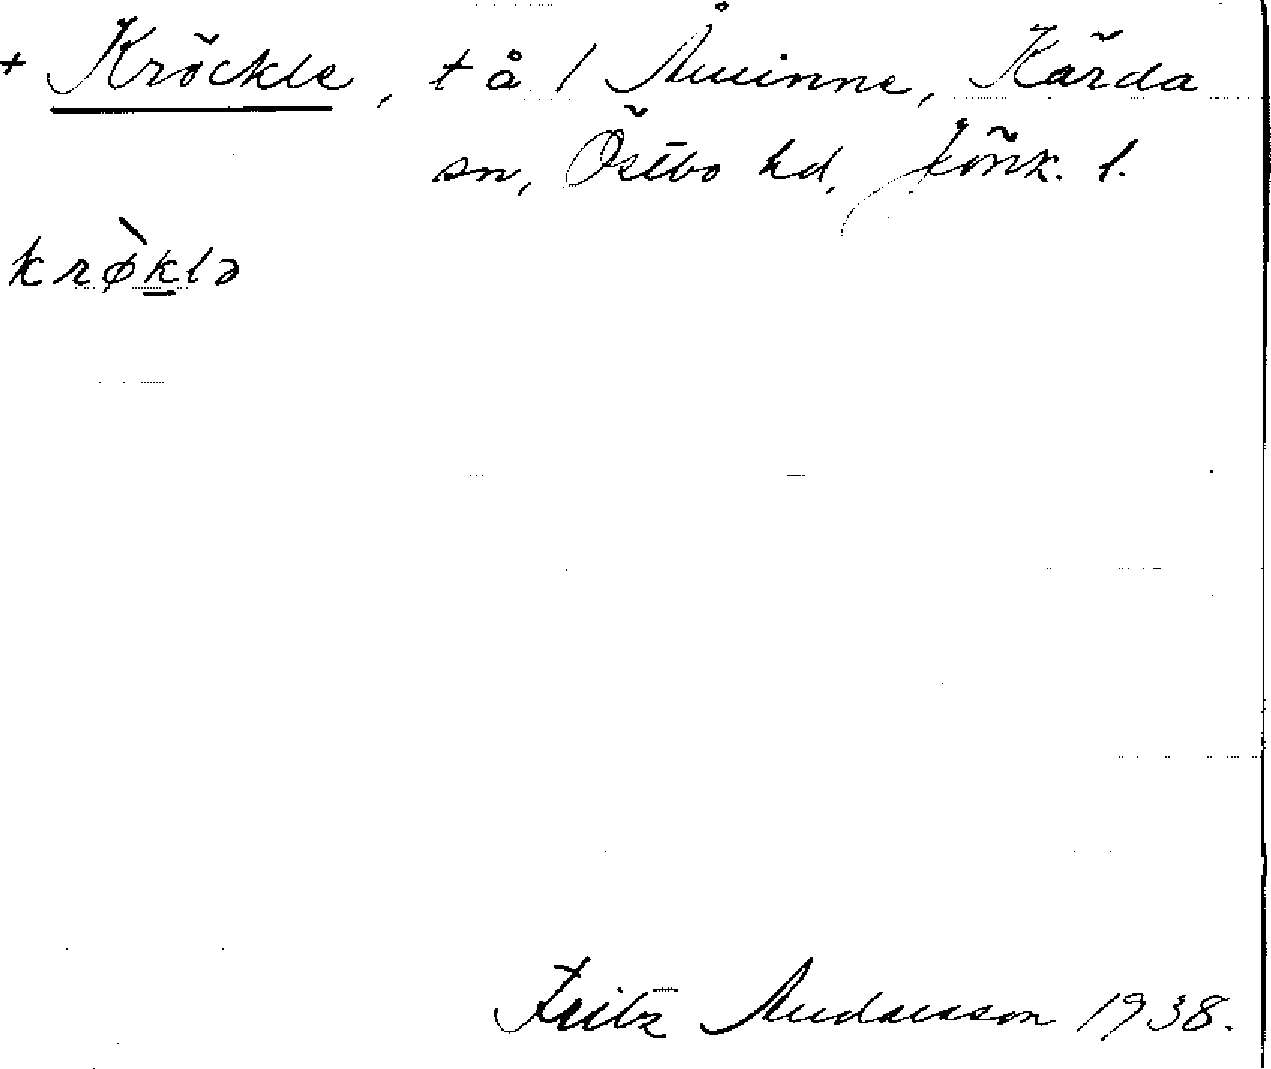 + Kröckle, tå / Åminne, Kärda
sn, Östbo hd, Jönk. l.
krø̀klə
Fritz Andersson 1938.